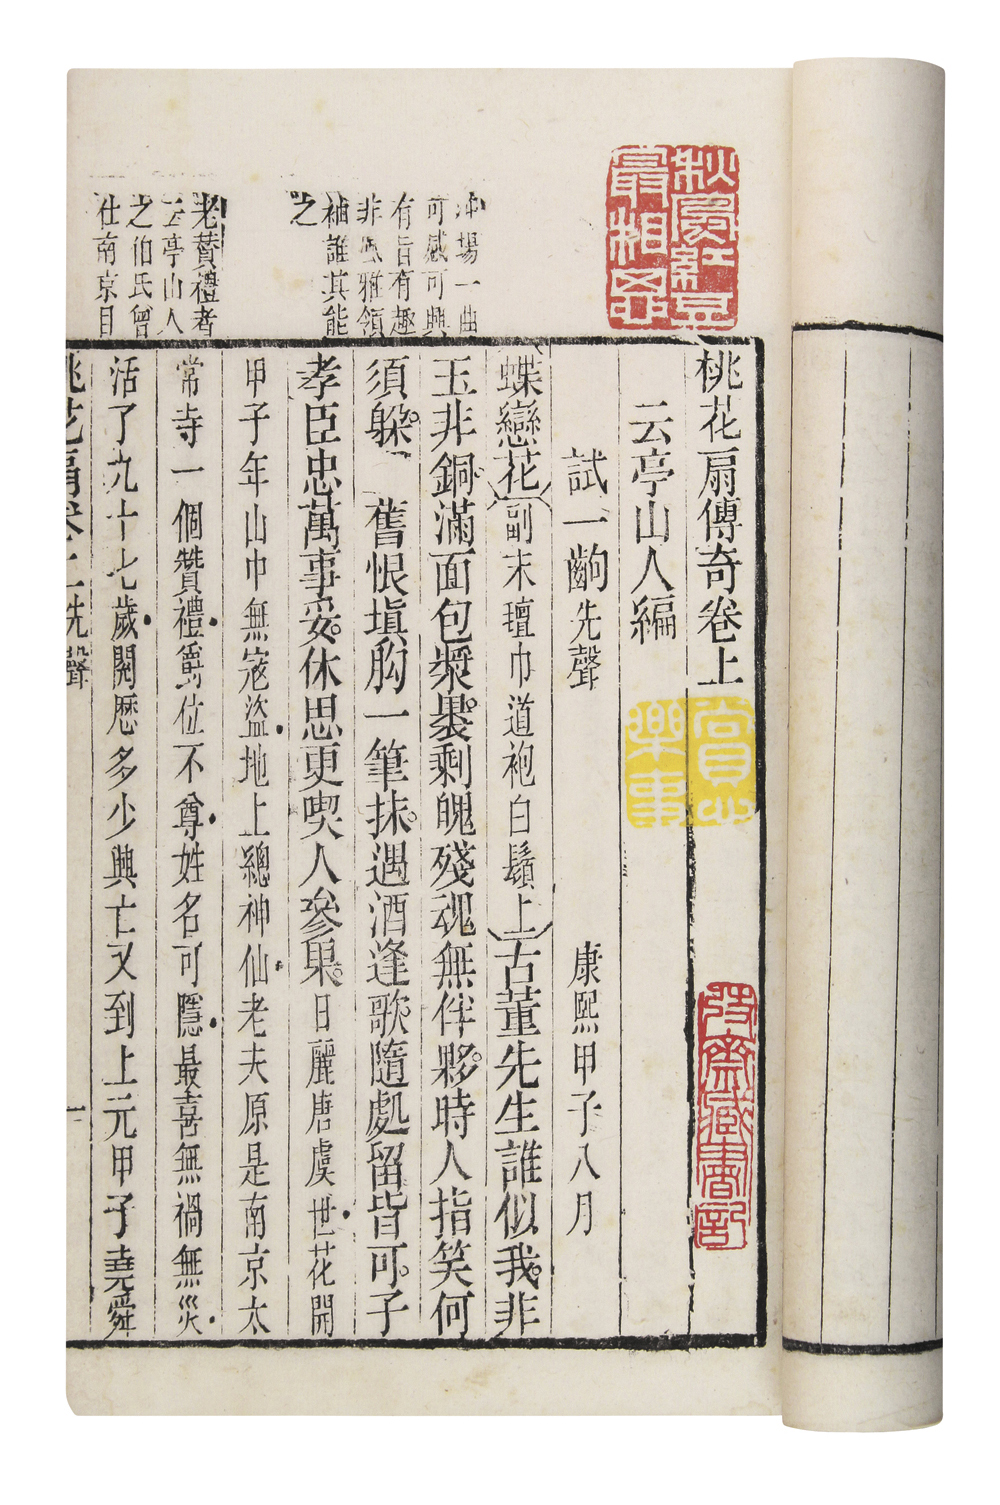 桃花扇傳奇卷上
云亭山人編
試一齣先聲 康熙甲子八月
蝶戀花副末氊巾道袍白鬚上古董先生誰似我非
玉非銅滿面包漿裹剩魄殘魂無伴夥時人指笑何
須躲 舊恨塡胸一筆抹遇酒逢歌隨處留皆可子
孝臣忠萬事妥休思更喫人參果日麗唐虞世花開
甲子年山中無寇盜地上總神仙老夫原是南京太
常寺一個贊禮爵位不尊姓名可隱最喜無禍無災
活了九十七歲閱歷多少興亡又到上元甲子堯舜
沖場一曲
可感可興
有旨有趣
非風雅領
袖誰其能
之
老贊禮者
云亭山人
之伯氏曾
仕南京目
桃花扇卷一先聲 一
最相思
賞心
樂事
藏書記